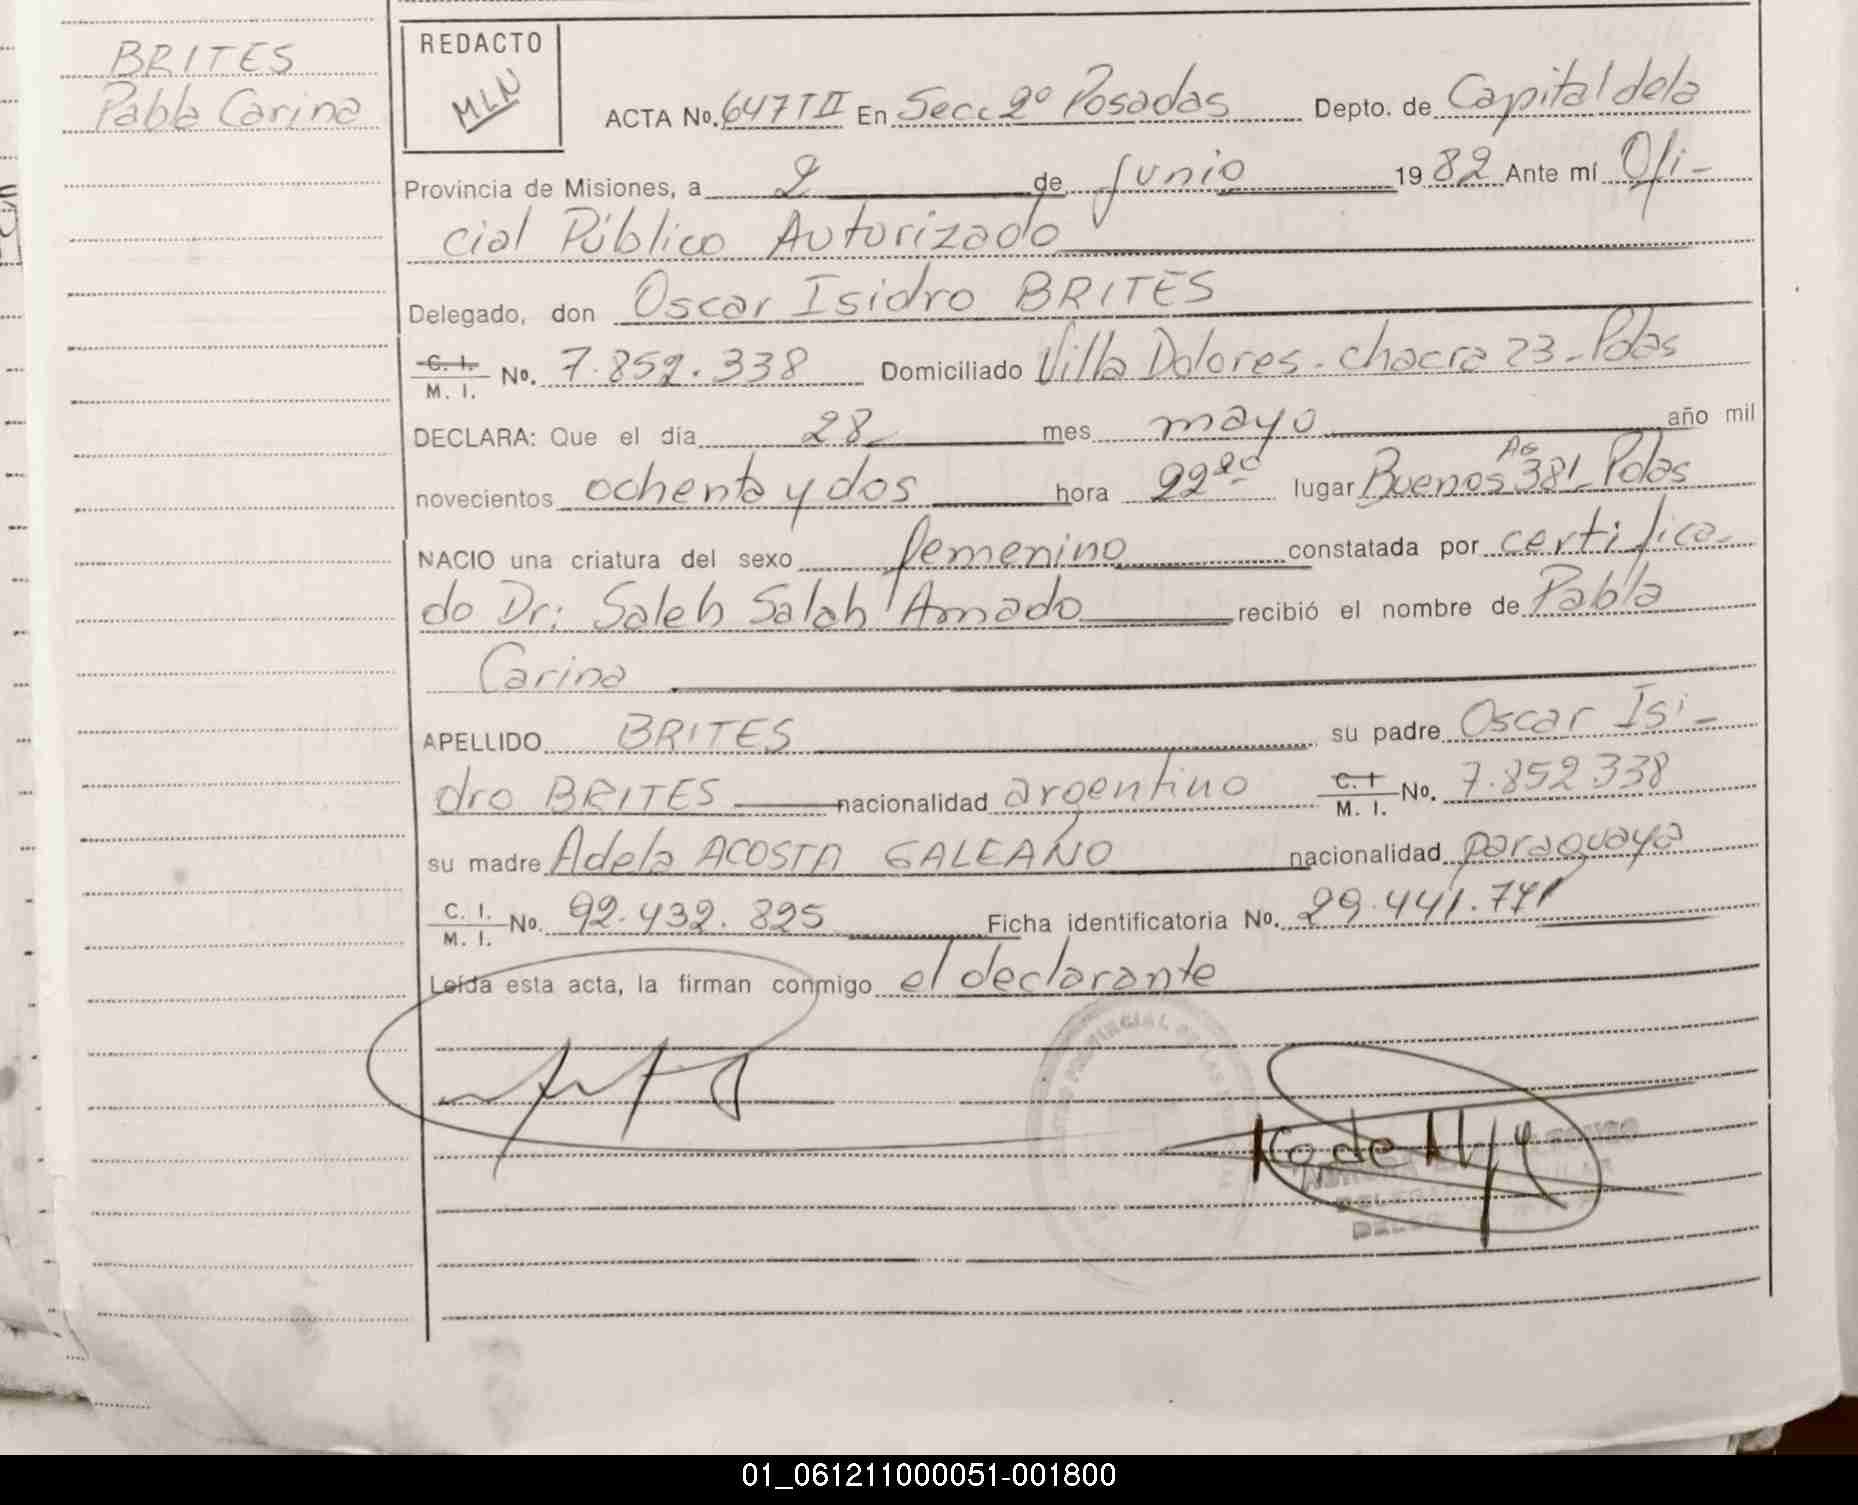 BRITES
Pabla Carina
REDACTO
MLN
ACTA No. 647 T II En Secc 2º Posadas Depto. de Capital de la
Provincia de Misiones, a 2 de Junio 1982 Ante mí Ofi-
cial Público Autorizado
Delegado, don Oscar Isidro BRITES
C. I.
M. I. No. 7.852.338 Domiciliado Villa Dolores - chacra 23 - Pdas
DECLARA: Que el día 28 mes mayo año mil
novecientos ochenta y dos hora 22²⁰ lugar Buenos As 381 - Pdas
NACIO una criatura del sexo femenino constatada por certifica-
do Dr: Saleh Salah Amado recibió el nombre de Pabla
Carina
APELLIDO BRITES su padre Oscar Isi-
dro BRITES nacionalidad argentino C. I
M. I. No. 7.852.338
su madre Adela ACOSTA GALEANO nacionalidad paraguaya
C. I.
M. I. No. 92.432.825 Ficha identificatoria No. 29.441.771
Leída esta acta, la firman conmigo el declarante
01_061211000051-001800